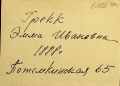 Грекк
Эмма Ивановна
1888г.
Потемкинская 65